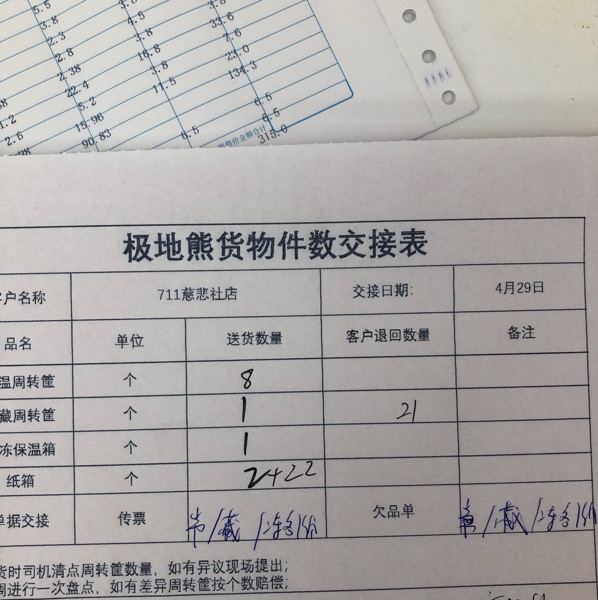 5.5
3.8
4.5
3.8
3.8
2.3
33.6
2.8
16.8
7.6
2.38
3.8
23.0
22.4
11.5
134.3
1.2
5.2
2.6
15.96
6.5
90.83
6.5
6.5
315.0
极地熊货物件数交接表
户名称 711慈悲社店 交接日期: 4月29日
品名 单位 送货数量 客户退回数量 备注
温周转筐 个 8
藏周转筐 个 1 21
冻保温箱 个 1
纸箱 个 2+22
单据交接 传票 常/藏/冻各1份 欠品单 常/藏/冻各1份
货时司机清点周转筐数量，如有异议现场提出;
周进行一次盘点，如有差异周转筐按个数赔偿;